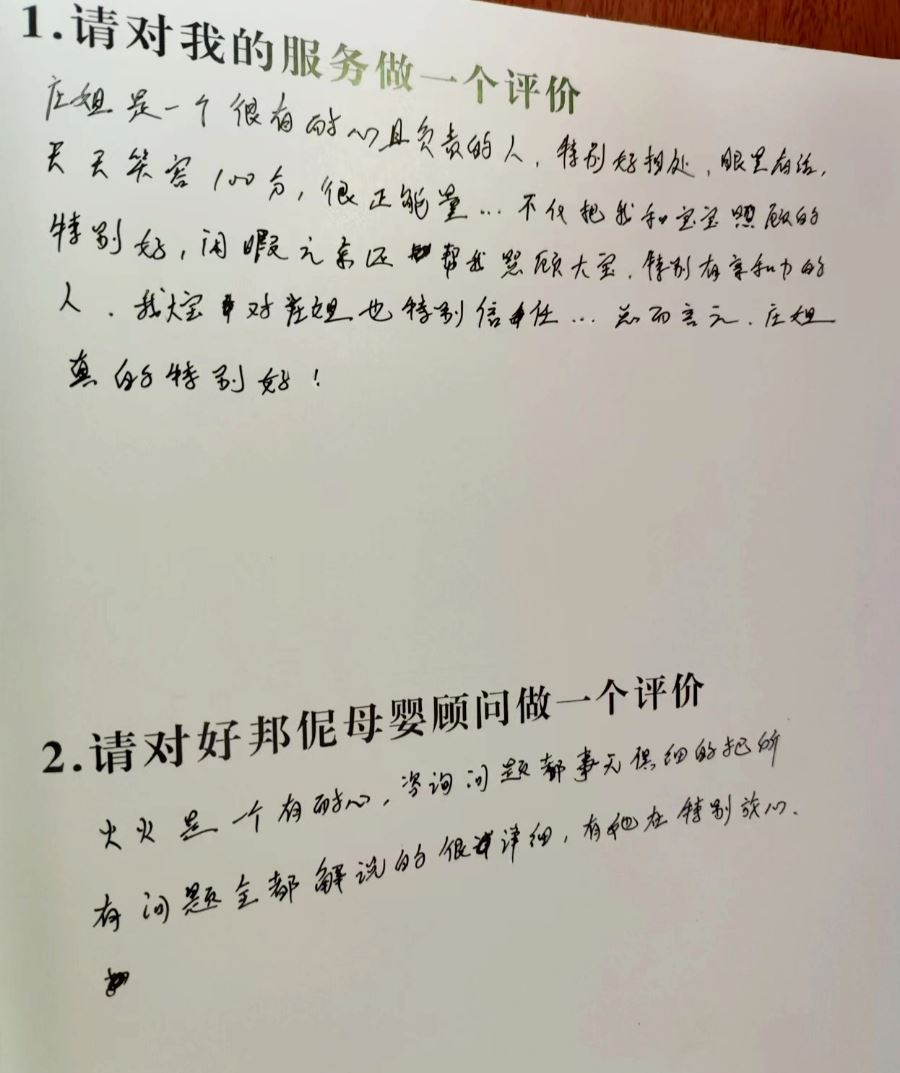 1.请对我的服务做一个评价
庄姐是一个很有耐心且负责的人，特别好相处，眼里有活，
天天笑容100分，很正能量…不仅把我和宝宝照顾的
特别好，闲暇之余还帮我照顾大宝，特别有亲和力的
人．我大宝对庄姐也特别信任…总而言之．庄姐
真的特别好！
2.请对好邦伲母婴顾问做一个评价
火火是一个有耐心，咨询问题都事无俱细的把所
有问题全都解说的很详细，有他在特别放心．